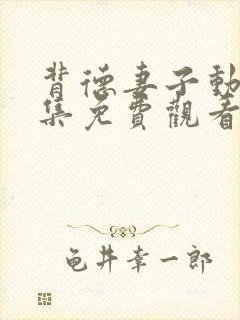 背德妻子動
集免費觀看
龟井幸一郎